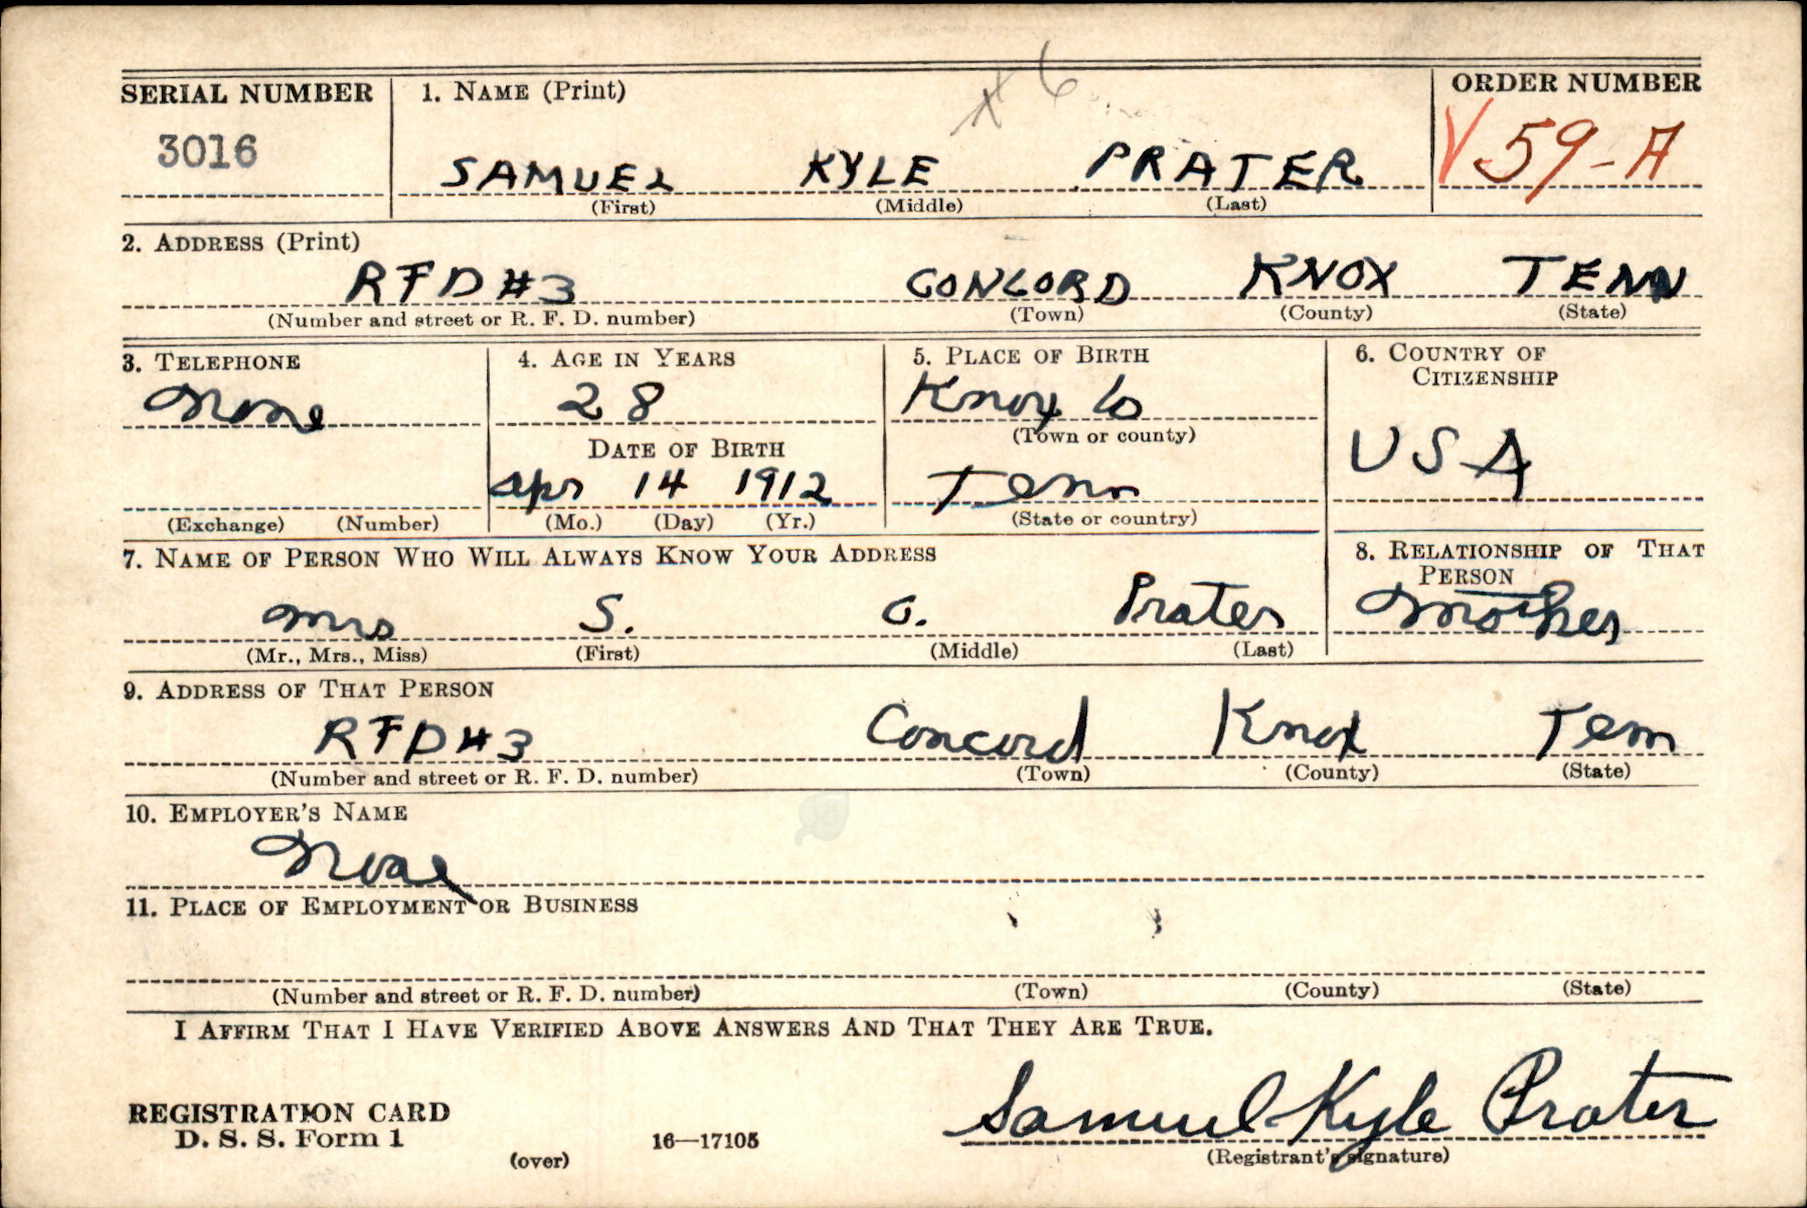 x 6
SERIAL NUMBER 1. NAME (Print) ORDER NUMBER
3016 SAMUEL KYLE PRATER V 59-A
(First) (Middle) (Last)
2. ADDRESS (Print)
RFD #3 CONCORD KNOX TENN
(Number and street or R. F. D. number) (Town) (County) (State)
3. TELEPHONE 4. AGE IN YEARS 5. PLACE OF BIRTH 6. COUNTRY OF CITIZENSHIP
None 28 Knox Co USA
(Town or county)
DATE OF BIRTH
Apr 14 1912 Tenn
(Exchange) (Number) (Mo.) (Day) (Yr.) (State or country)
7. NAME OF PERSON WHO WILL ALWAYS KNOW YOUR ADDRESS 8. RELATIONSHIP OF THAT PERSON
Mrs S. O. Prater Mother
(Mr., Mrs., Miss) (First) (Middle) (Last)
9. ADDRESS OF THAT PERSON
RFD #3 Concord Knox Tenn
(Number and street or R. F. D. number) (Town) (County) (State)
10. EMPLOYER'S NAME
None
11. PLACE OF EMPLOYMENT OR BUSINESS
(Number and street or R. F. D. number) (Town) (County) (State)
I AFFIRM THAT I HAVE VERIFIED ABOVE ANSWERS AND THAT THEY ARE TRUE.
Samuel Kyle Prater
REGISTRATION CARD
D. S. S. Form 1 (over) 16—17105 (Registrant's signature)